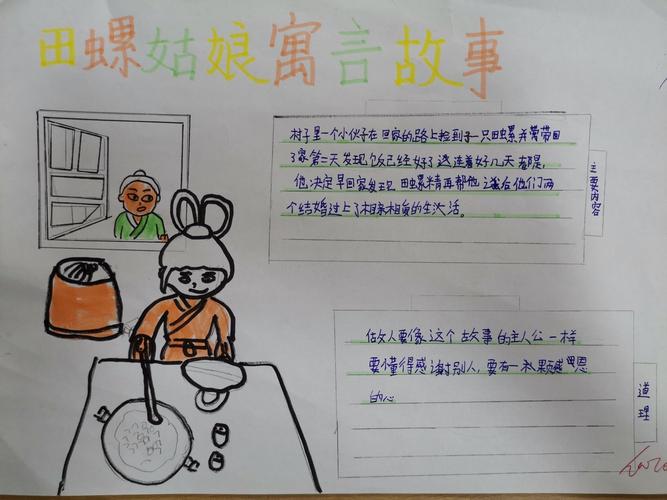 田螺姑娘寓言故事
村子里一个小伙子在回家的路上捡到了一只田螺并带回
了家第二天发现饭已经好了这连着好几天都是
他决定早回家发现田螺精再帮他之后他们两
个结婚过上了相亲相爱的生活。
主要内容
做人要像这个故事的主人公一样
要懂得感谢别人,要有一颗感恩
的心
道理